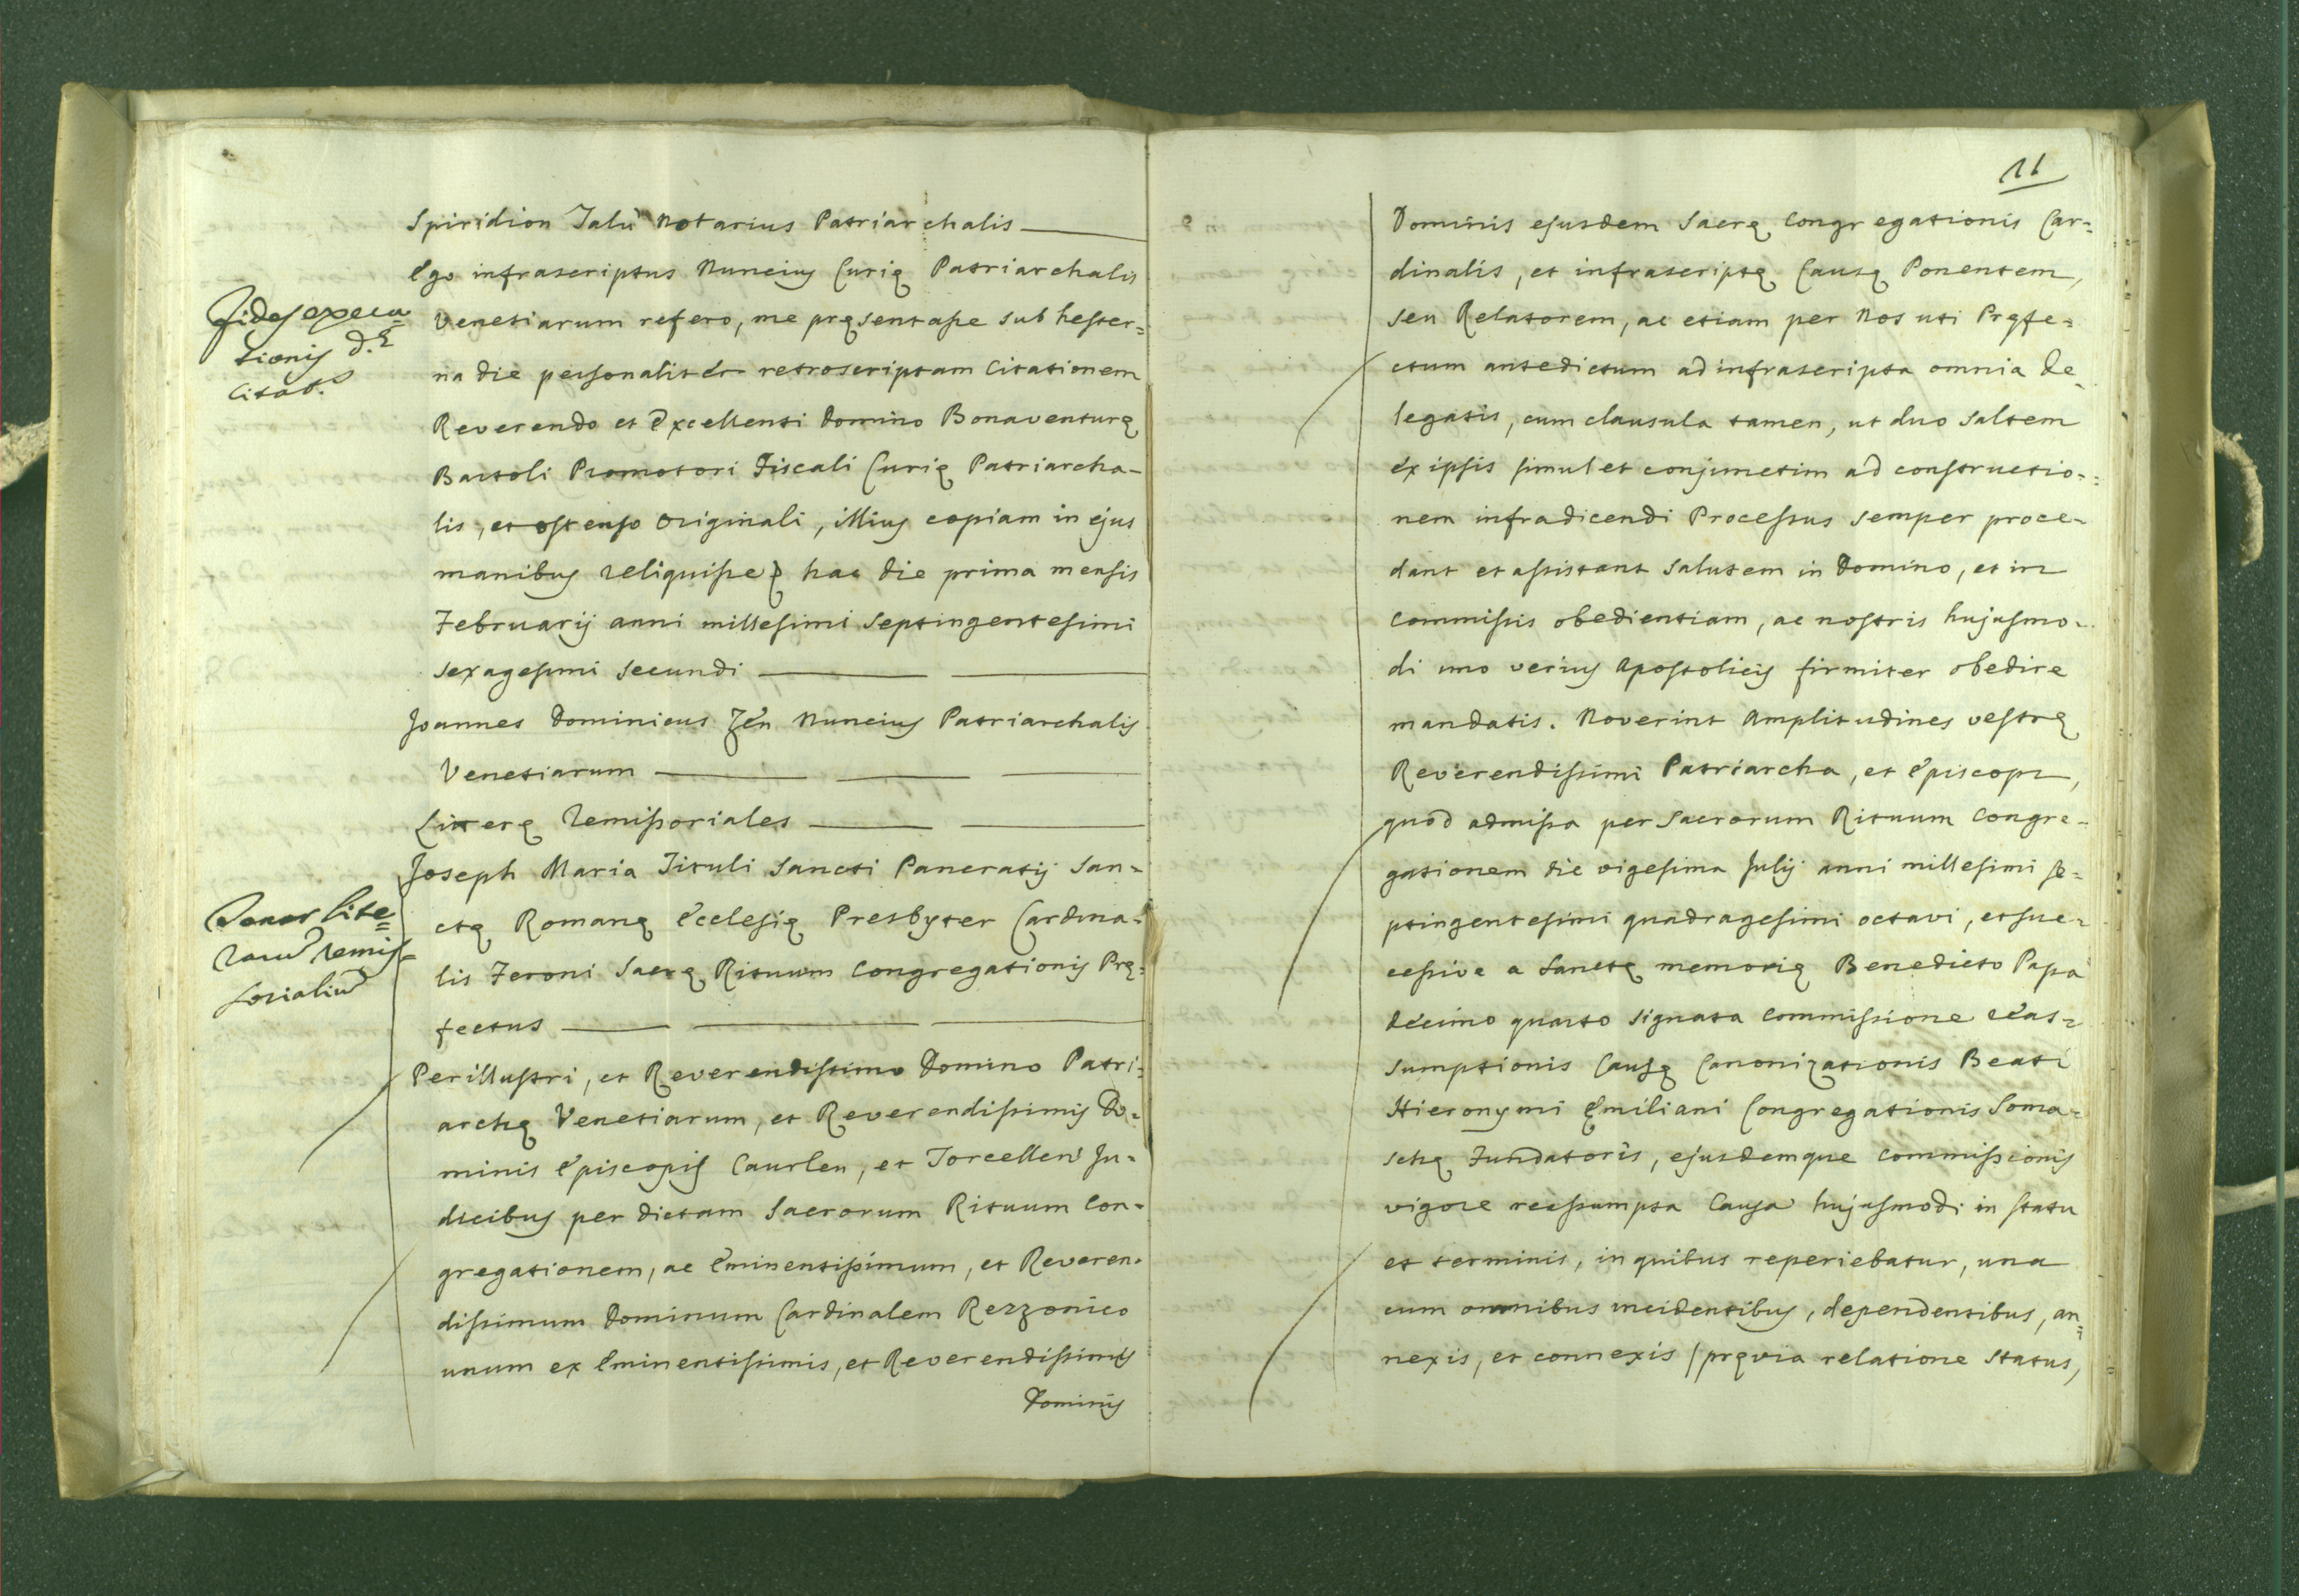 Spiridion Talù Notarius Patriarchalis
Ego infrascriptus Nuncius Curię Patriarchalis
Venetiarum refero, me pręsentasse sub hester=
na die personaliter retroscriptam Citationem
Reverendo et Excellenti Domino Bonaventurę
Bartoli Promotori Fiscali Curię Patriarcha-
lis, et ostenso originali, illius copiam in ejus
manibus reliquisse hac die prima mensis
Februarij anni millesimi septingentesimi
sexagesimi secundi
Fides execu=
tionis d.ę
Citat.s
Joannes Dominicus Zen Nuncius Patriarchalis
Venetiarum
Litterę Remissoriales
Joseph Maria Tituli Sancti Pancratij San=
ctę Romanę Ecclesię Presbyter Cardina=
lis Feroni Sacrę Rituum Congregationis Prę=
fectus
Tenor lite=
rarum remis=
sorialium
Perillustri, et Reverendissimo Domino Patri=
archę Venetiarum, et Reverendissimis Do=
minis Episcopis Caurlen, et Torcellen Ju=
dicibus per dictam Sacrorum Rituum Con=
gregationem, ac Eminentissimum, et Reveren=
dissimum Dominum Cardinalem Rezzonico
unum ex Eminentissimis, et Reverendissimis
Dominis
11
Dominis ejusdem Sacrę Congregationis Car=
dinalis, et infrascriptę Causę Ponentem,
seu Relatorem, ac etiam per Nos uti Pręfe=
ctum antedictum ad infrascripta omnia de=
legatis, cum clausula tamen, ut duo saltem
ex ipsis simul et conjunctim ad constructio=
nem infradicendi Processus semper proce=
dant et assistant salutem in Domino, et in
commissis obedientiam, ac nostris hujusmo=
di imo verius Apostolicis firmiter obedire
mandatis. Noverint Amplitudines vestrę
Reverendissimi Patriarcha, et Episcopi,
quod admissa per Sacrorum Rituum Congre=
gationem die vigesima Julij anni millesimi se=
ptingentesimi quadragesimi octavi, et suc=
cessive a Sanctę memorię Benedicto Papa
decimo quarto signata commissione reas=
sumptionis Causę Canonizationis Beati
Hieronymi Ęmiliani Congregationis Soma=
schę Fundatoris, ejusdemque commissionis
vigore reassumpta Causa hujusmodi in statu
et terminis, in quibus reperiebatur, una
cum omnibus incidentibus, dependentibus, an=
nexis, et connexis / pręvia relatione status,